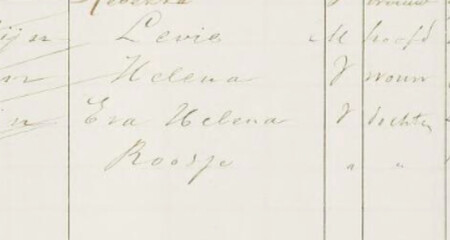 Rebekka V vrouw
ijn Levie M hoofd
n Helena V vrouw
in Eva Helena V dochter
Roosje " "